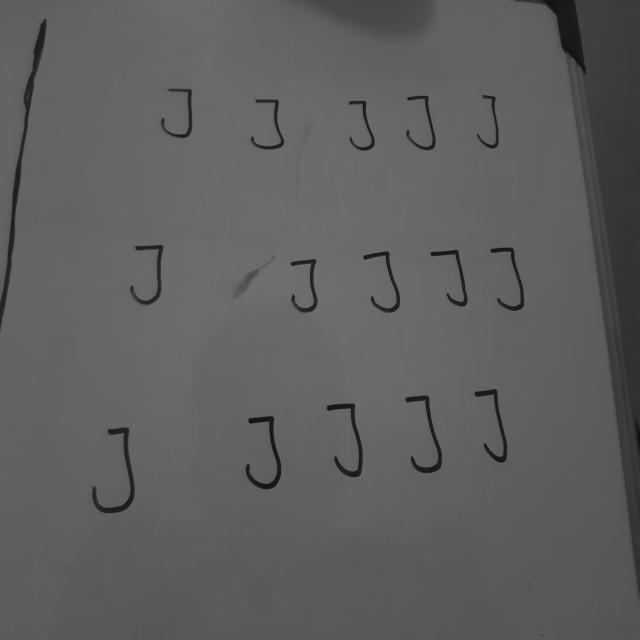 J J J J J
J J J J J
J J J J J